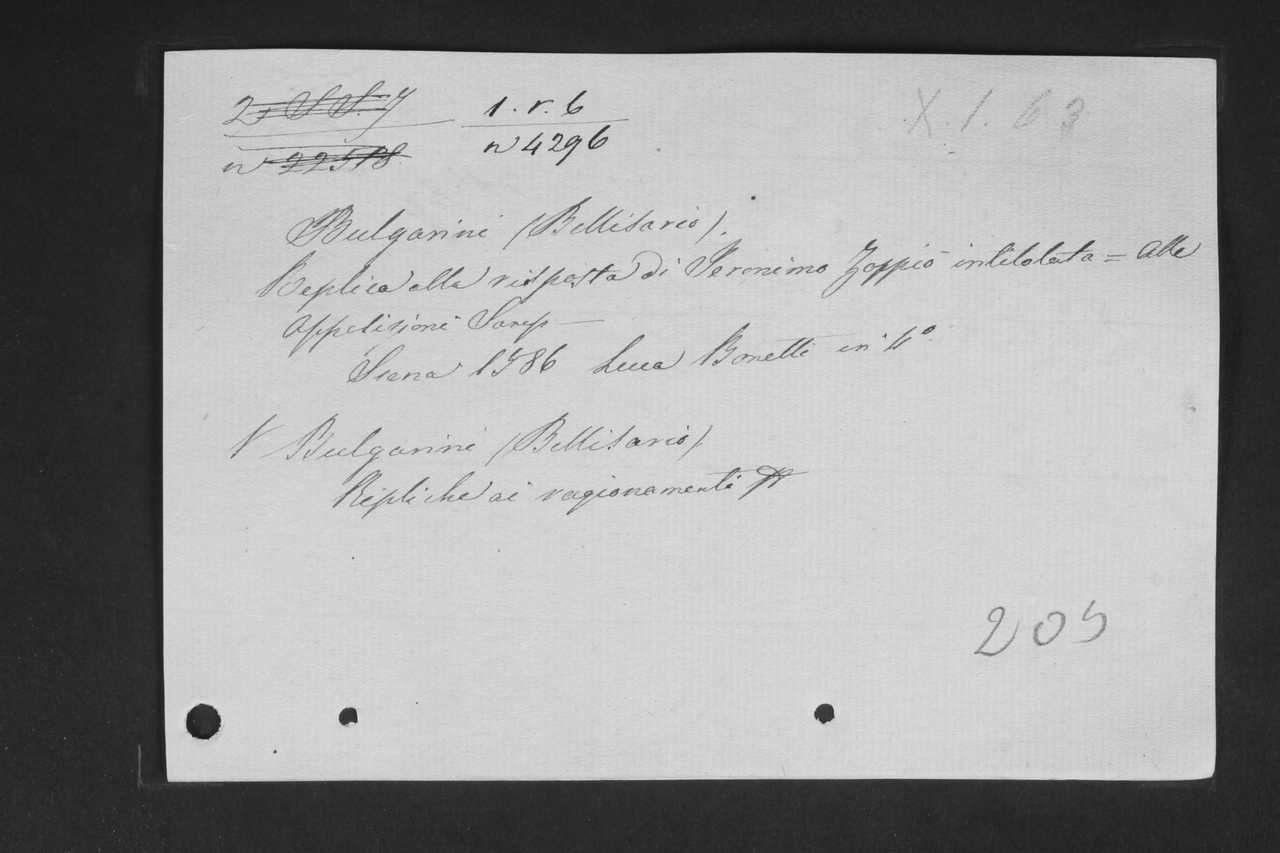 1. r. 6
X. 1. 63
n 22518
n 4296
Bulgarini (Bellisario).
Replica alla risposta di Jeronimo Zoppio intitolata = Alle
Appolisioni Sanep
Siena 1586 Luca Bonetti in 4º
V Bulgarini (Bellisario)
Repliche ai ragionamenti
205